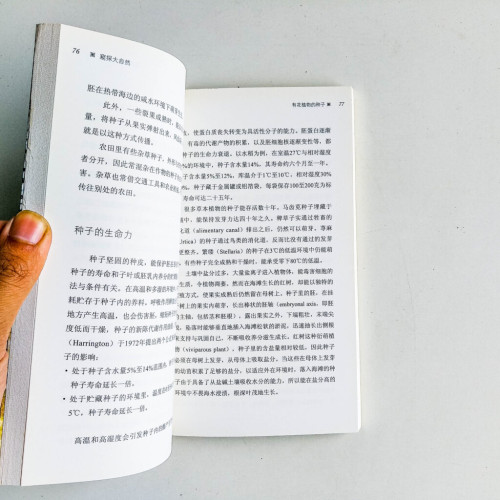 76 ■ 窥探大自然
胚在热带海边的咸水环境下
此外，一些裂果成熟时，
量，将种子从果实弹射出来，
就是以这种方式传播。
农田里有些杂草种子，
者分开，因此常混杂在作物的种子
害。杂草也常借交通工具和农
传往别处的农田。
种子的生命力
种子坚固的种皮，能保护胚
种子的寿命和子叶或胚乳内养分的贮
法与条件有关。在高温和多湿的环境
耗贮存于种子内的养料。呼吸作用
地方产生高温，也会伤害胚。
度低而干燥，种子的新陈代谢作用
（Harrington）于1972年提出两个
子的影响：
• 处于种子含水量5%至14%范围内，
种子寿命延长一倍。
• 处于贮藏种子的环境里，温度
5℃，种子寿命延长一倍。
高温和高湿度会引发种子内的
有花植物的种子 ■ 77
化，使蛋白质丧失转变为具活性分子的能力。胚蛋白逐渐
，有毒的代谢产物的积累，以及胚细胞核逐渐变形等，都
种子的生命力衰退。以水稻为例，在室温27℃与相对湿度
%的环境中，种子含水量14%，其寿命约六个月至一年。
种子含水量5%至12%，库温介于1℃至10℃，相对湿度30%
%，种子藏于金属罐或铝箔袋，每袋保存100至200克为标
寿命可达二十五年。
很多草本植物的种子能存活数十年。马齿苋种子埋藏于
壤中，能保持发芽力达四十年之久。稗草子实通过牲畜的
化道（alimentary canal）排出之后，仍然可以萌芽。荨麻
rtica）的种子通过鸟类的消化道，反而比没有通过的发芽
更整齐。繁缕（Stellaria）的种子在5℃的低温环境中仍能萌
有些种子完全成熟和干燥时，能承受零下80℃的低温。
土壤中盐分过多，大量盐离子进入植物体，能毒害细胞的
生活，令植物凋萎。然而在海滩生长的红树，却能以独特的
殖方式，使果实成熟后仍然留在母树上，种子里的胚，在挂
树上的果实内萌芽，长出棒状的胚轴（embryonal axis，即胚
主轴，包括茎和胚根），露出果实之外，下端粗壮，末端尖
坠落时能够垂直地插入海滩松软的淤泥，迅速地长出侧根
来支持与巩固自己，不断吸收养分逐渐生成长。红树这种衍苗植
（viviparous plant），种子里的含盐量相对较低，因此种子
须在母树上发芽，从母体上吸取盐分，当这些在母体上发芽
的幼苗积累了足够的盐分，以适应外在环境时，落入海滩的种
子由于具备了从盐碱土壤吸收水分的能力，所以能在盐分高的
环境中不畏海水浸渍，根深叶茂地生长。